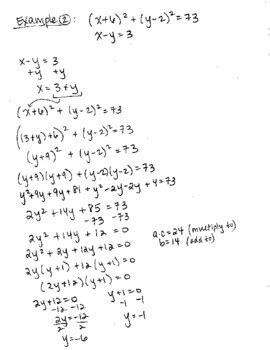 Example ②: (x+6)² + (y-2)² = 73
x-y = 3
x-y = 3
+y +y
x = 3+y
(x+6)² + (y-2)² = 73
((3+y)+6)² + (y-2)² = 73
(y+9)² + (y-2)² = 73
(y+9)(y+9) + (y-2)(y-2) = 73
y²+9y+9y+81 + y²-2y-2y+4 = 73
2y² + 14y + 85 = 73
-73 -73
2y² + 14y + 12 = 0
2y² + 2y + 12y + 12 = 0
2y(y+1) + 12(y+1) = 0
(2y+12)(y+1) = 0
a·c = 24 (multiply to)
b = 14 (add to)
2y+12 = 0 y+1 = 0
-12 -12 -1 -1
2y = -12 y = -1
2 2
y = -6